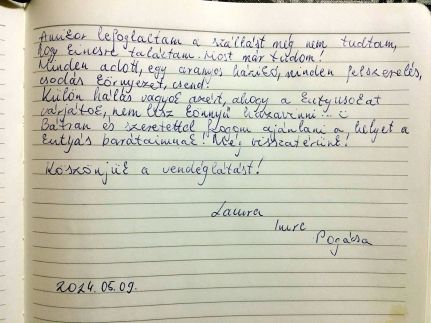 Amikor lefoglaltam a szállást még nem tudtam,
hogy kincsre találtam. Most már tudom!
Minden adott, egy aranyos házikó, minden felszerelés,
csodás környezet, csend!
Külön hálás vagyok azért, ahogy a kutyusokat
várjátok, nem lesz könnyű hazavinni...
Bátran és szeretettel fogom ajánlani a helyet a
kutyás barátaimnak! Még visszatérünk!
Köszönjük a vendéglátást!
Laura
Imre
Pogácsa
2024.05.09.